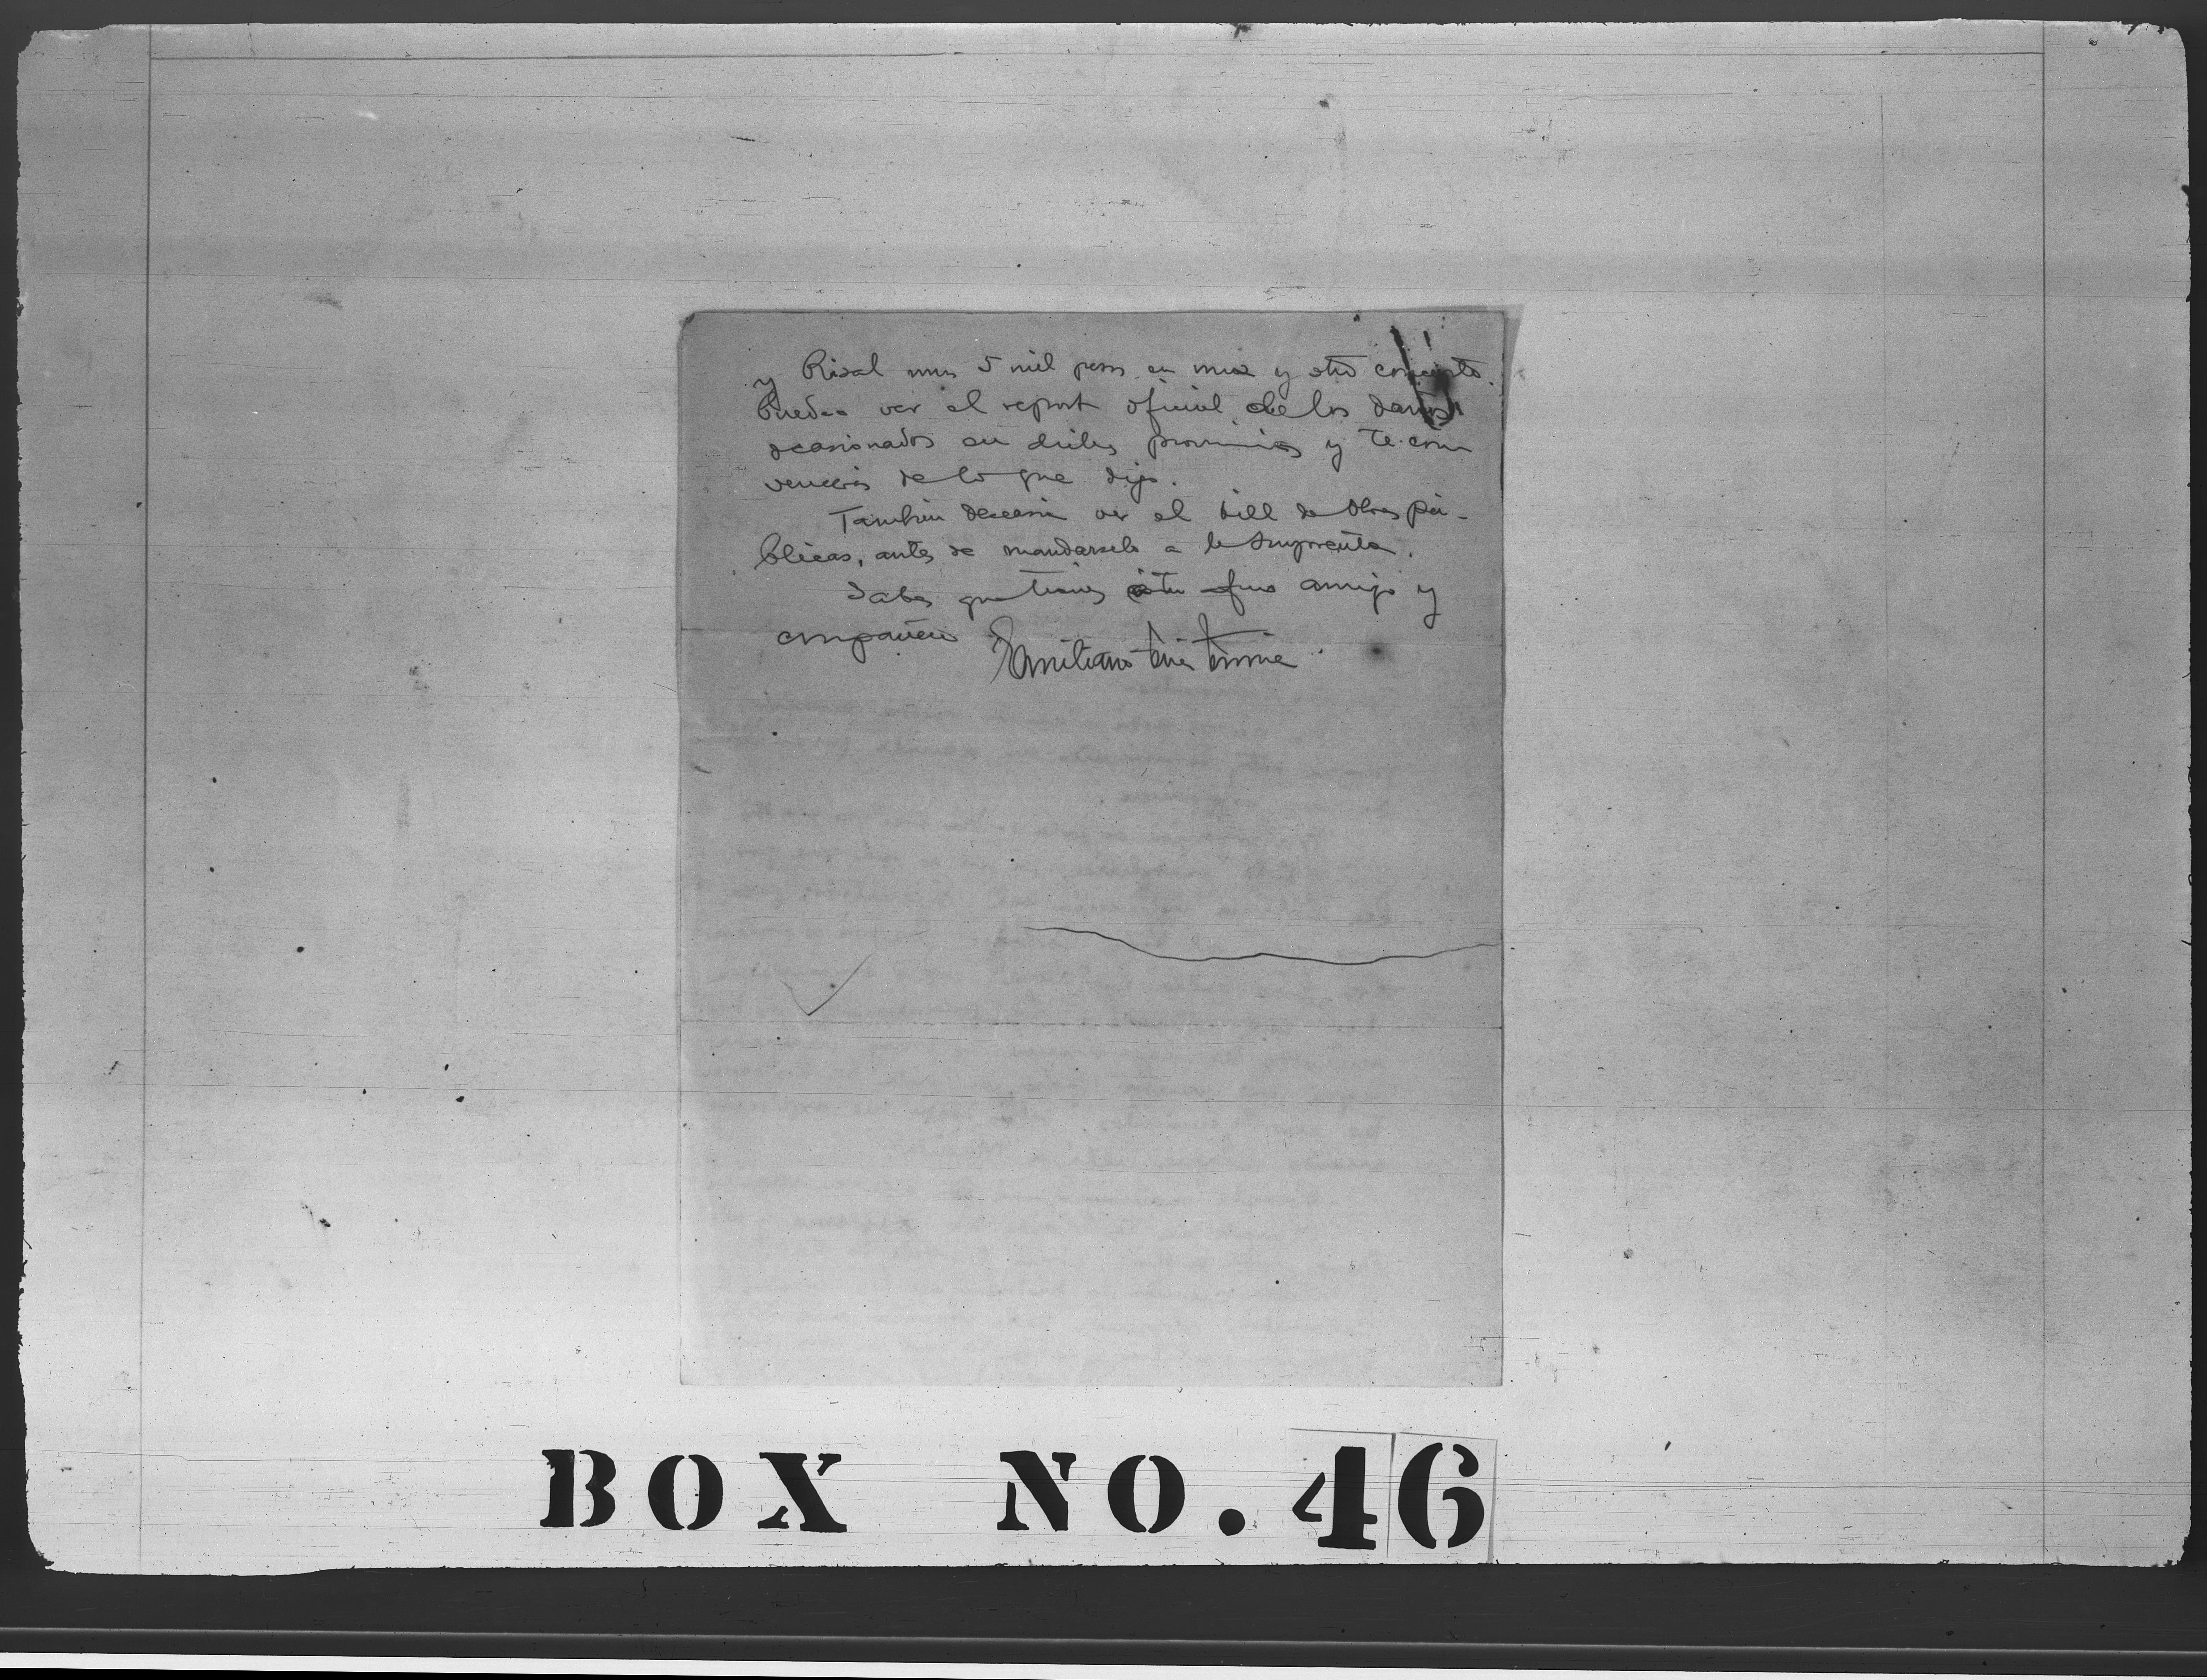 y Rizal unos 5 mil pesos en uno y otro concepto.
Puedes ver el report oficial de los daños
ocasionados en dichas provincias y te con
vencerás de lo que digo.
También desearia ver el bill de Obras pú-
blicas, antes de mandarselo a la Imprenta.
Sabes que tienes a tu afmo amigo y
compañero Emiliano Tria Tirona
BOX NO. 46